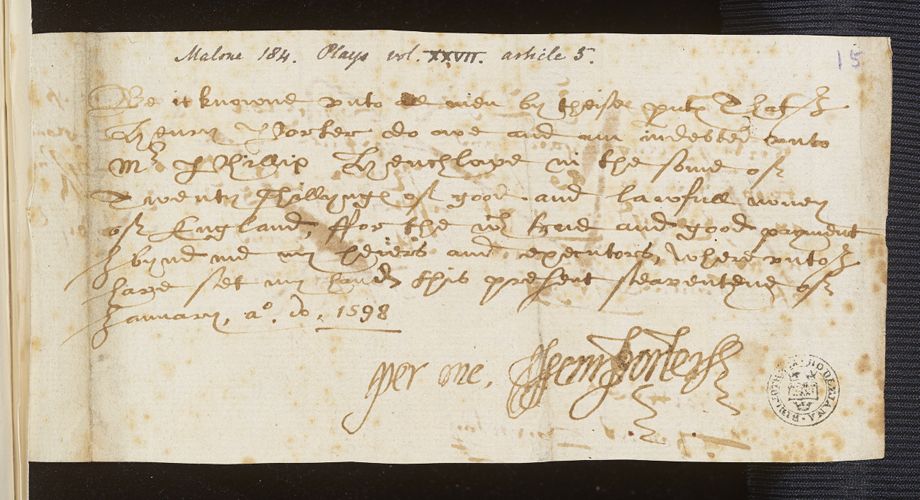 Malone 184. Plays vol. XXVII. article 5.
15
Be it knowne vnto all men by theise pnts That I
Henry Porter do owe and am indetted vnto
Mr Phillip Henchlowe in the some of
Twenty shillyngs of good and lawfull money
of England, ffor the wch true and good payment
I bynd me my heiers and executors, Where vnto I
have set my hand this present seaventene of
January, ao. do. 1598
per me, Henry Porter
BIBLIOTHECA BODLEIANA